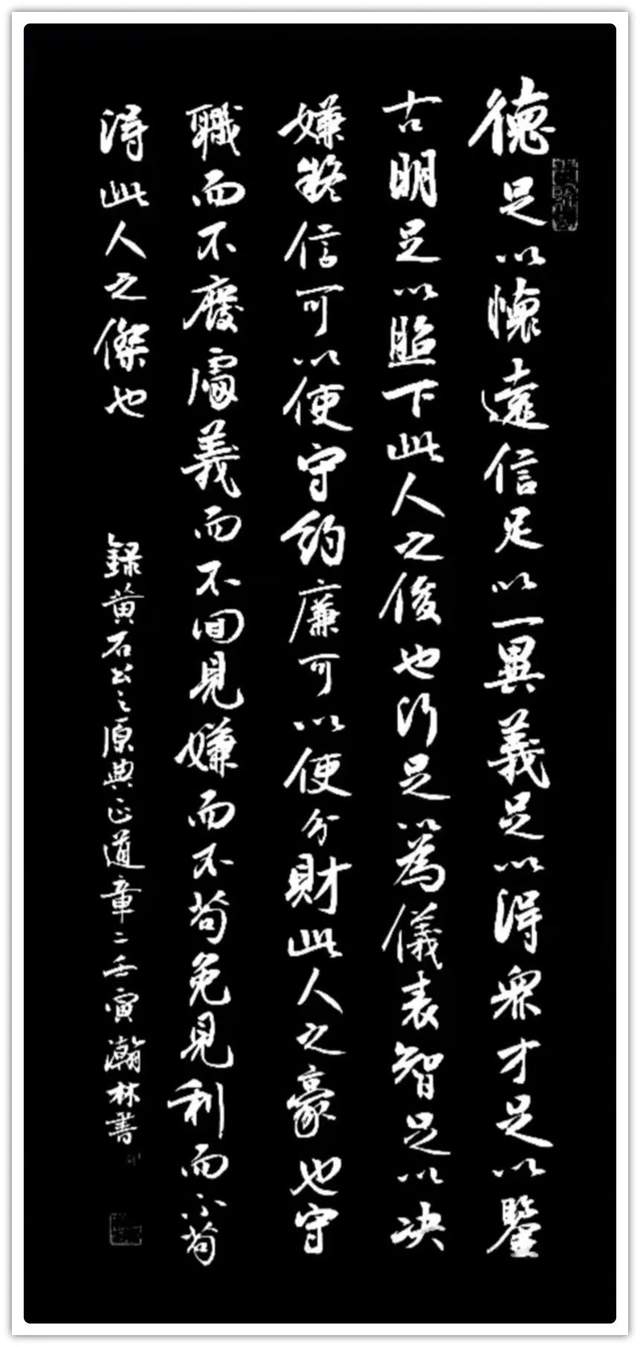 德足以懷遠信足以一異義足以得衆才足以鑒
古明足以照下此人之俊也行足以為儀表智足以决
嫌疑信可以使守約廉可以使分財此人之豪也守
職而不廢處義而不回見嫌而不苟免見利而不苟
得此人之傑也
錄黃石公之原典正道章二壬寅瀚林書